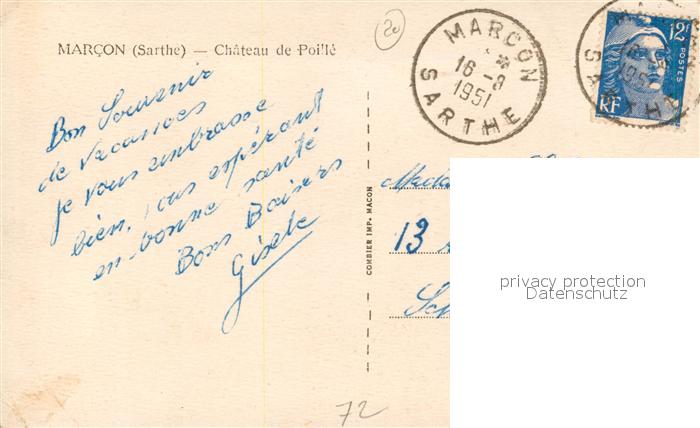 MARÇON (Sarthe) — Château de Poillé
20
MARCON
16-8
1951
SARTHE
12F
POSTES
RF
16-8
1951
SARTHE
Bon Souvenir
de vacances
je vous embrasse
bien, vous espérant
en bonne santé
Bons Baisers
Gisèle
COMBIER IMP. MACON
13
privacy protection
Datenschutz
72